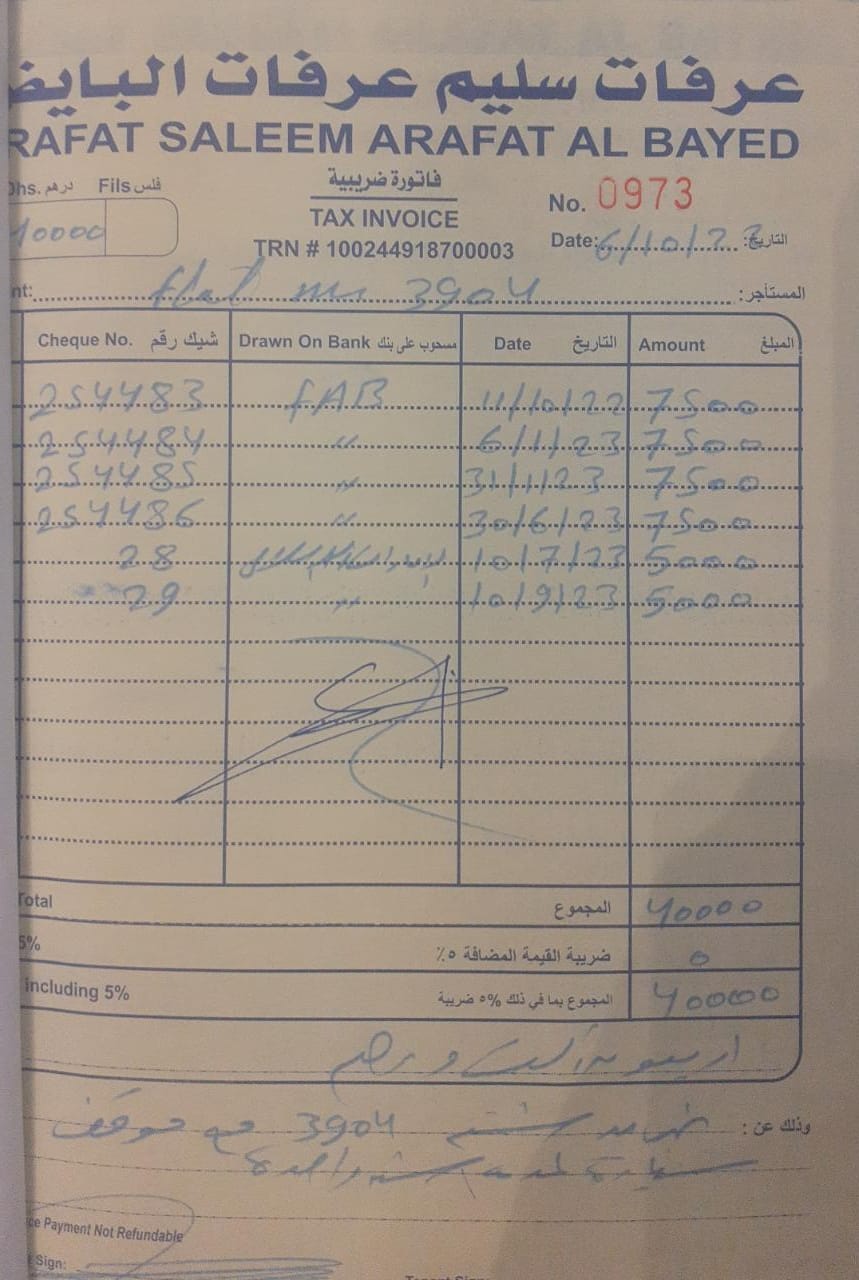 عرفات سليم عرفات البايض
RAFAT SALEEM ARAFAT AL BAYED
Dhs. درهم Fils فلس
40000
فاتورة ضريبية
TAX INVOICE
TRN # 100244918700003
No. 0973
Date: 6/10/23 التاريخ:
nt: flat 3904 المستأجر:
Cheque No. شيك رقم Drawn On Bank مسحوب على بنك Date التاريخ Amount المبلغ
254483 FAB 11/10/22 7500
254484 〃 6/1/23 7500
254485 〃 31/1/23 7500
254486 〃 30/6/23 7500
28 10/7/23 5000
29 〃 10/9/23 5000
Total المجموع 40000
5% ضريبة القيمة المضافة ٥٪ 0
including 5% المجموع بما في ذلك %٥ ضريبة 40000
اربعون ألف درهم
وذلك عن : 3904 مع موقف
سيارة لمدة سنة واحدة
ce Payment Not Refundable
Sign: